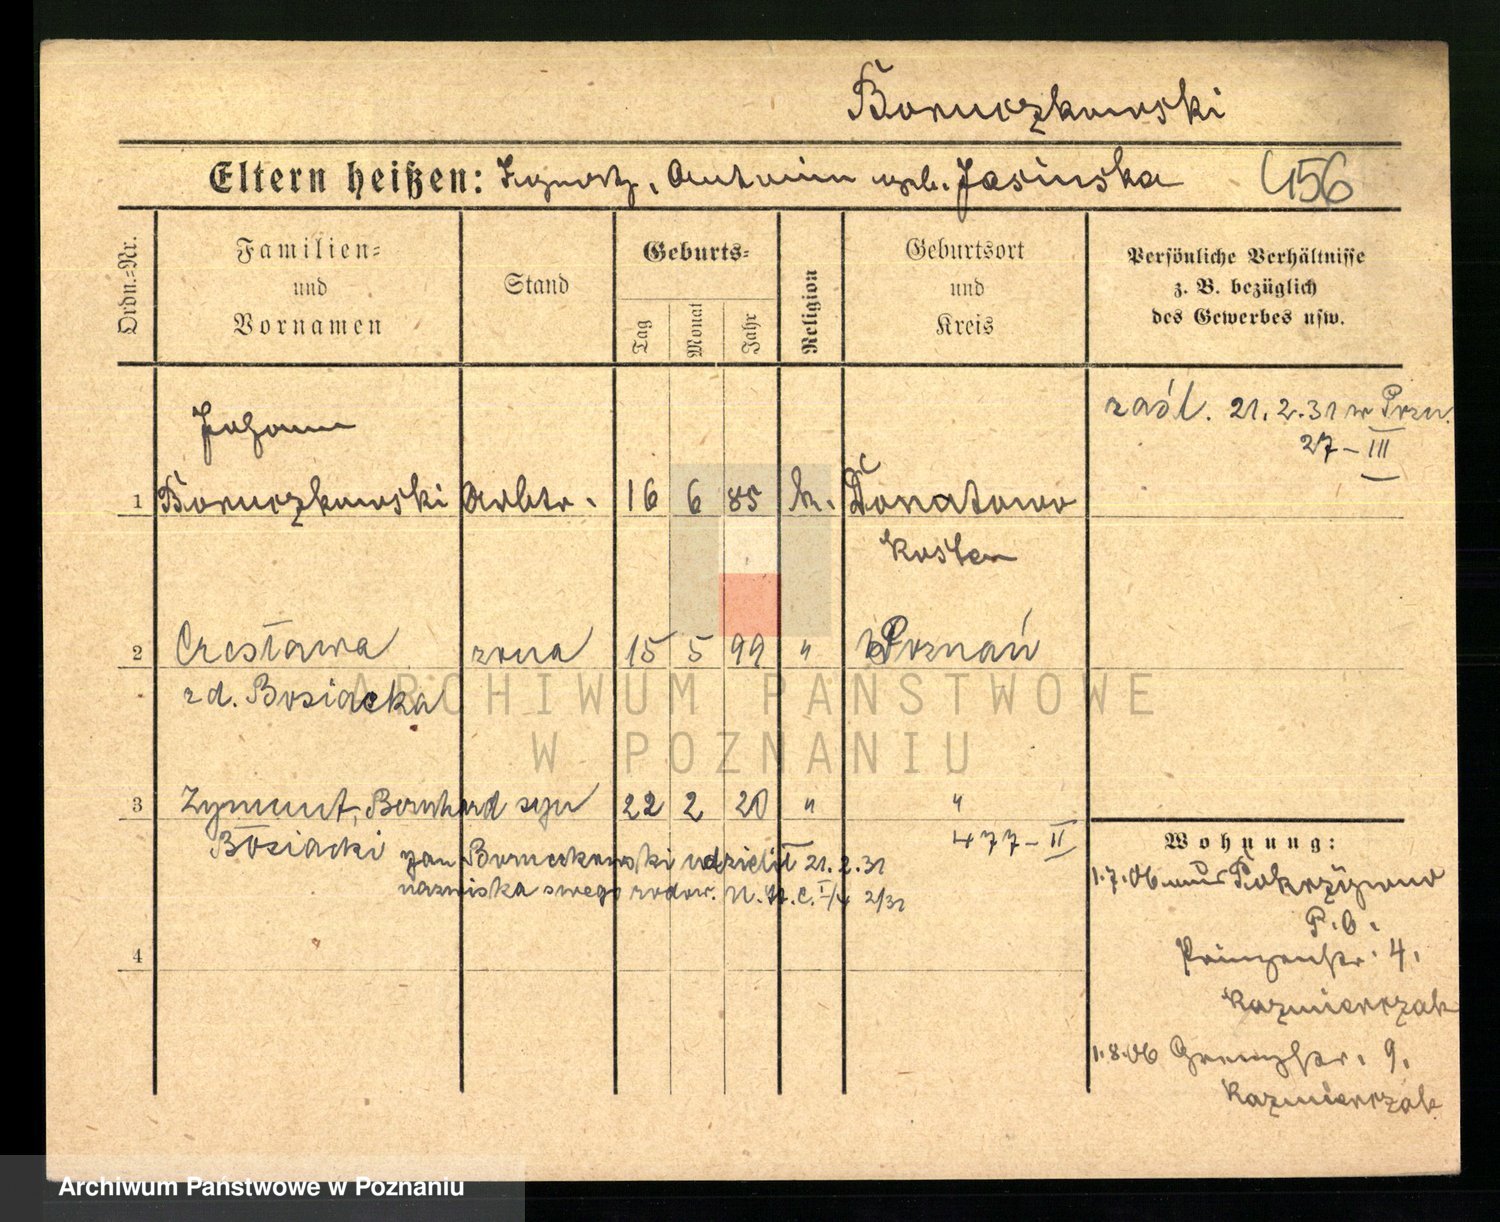 Boruczkowski
Eltern heißen: Ignatz, Antonin geb. Jasinska
456
Ordn.=Nr.
Familien=
und
Vornamen
Stand
Geburts=
Tag
Monat
Jahr
Religion
Geburtsort
und
Kreis
Persönliche Verhältnisse
z. B. bezüglich
des Gewerbes usw.
zaśl. 21.2.31 w Pozn.
27-III
Johann
1 Boruczkowski Arbtr. 16 6 85 k. Donatowo
Kosten
2 Czesława żona 15 5 99 " Poznań
zd. Bosiacka
3 Zygmunt, Bernhard syn 22 2 20 " "
Bosiacki
477-II
Jan Boruczkowski udzielił 21.2.31
nazwiska swego rodow. 2/31
4
Wohnung:
1.7.06 aus Pokrzywno
P.O.
Prinzenstr. 4.
Kazmierczak
1.8.06 Grenzstr. 9.
Kazmierczak
ARCHIWUM PAŃSTWOWE
W POZNANIU
Archiwum Państwowe w Poznaniu